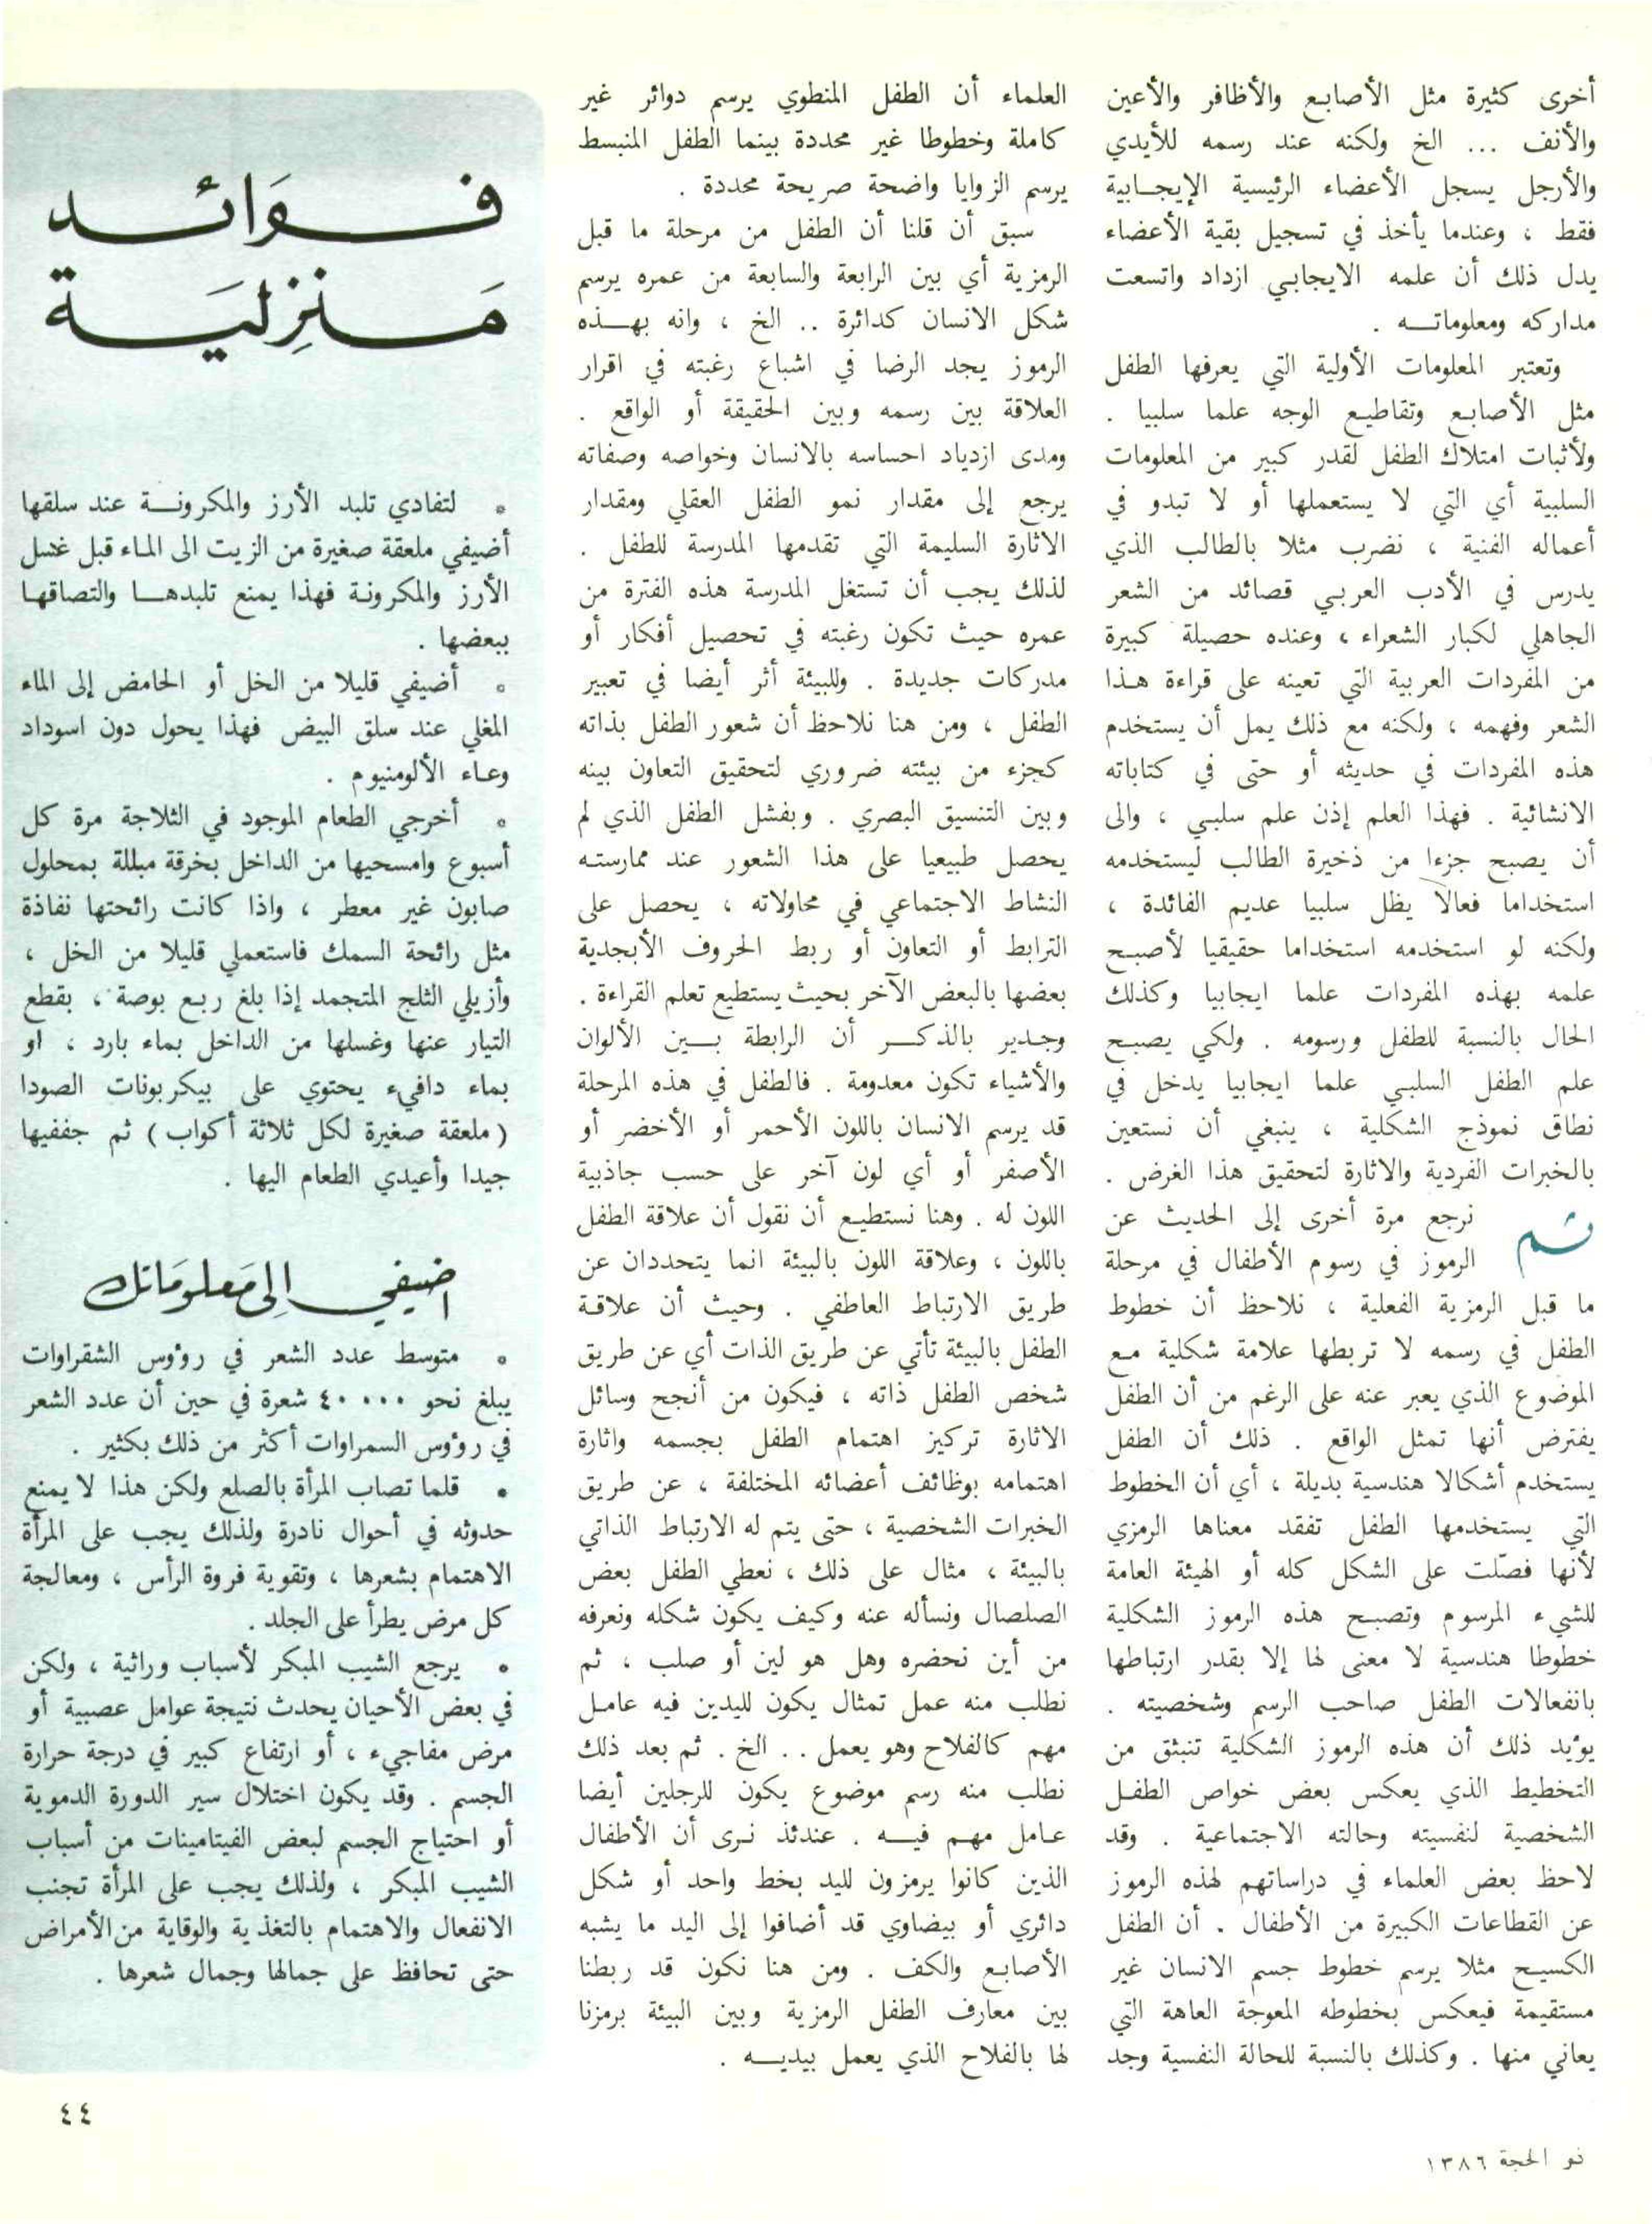 أخرى كثيرة مثل الأصابع والأظافر والأعين
والأنف ... الخ ولكنه عند رسمه للأيدي
والأرجل يسجل الأعضاء الرئيسية الإيجابية
فقط ، وعندما يأخذ في تسجيل بقية الأعضاء
يدل ذلك أن علمه الايجابي ازداد واتسعت
مداركه ومعلوماته .
وتعتبر المعلومات الأولية التي يعرفها الطفل
مثل الأصابع وتقاطيع الوجه علما سلبيا .
ولأثبات امتلاك الطفل لقدر كبير من المعلومات
السلبية أي التي لا يستعملها أو لا تبدو في
أعماله الفنية ، نضرب مثلا بالطالب الذي
يدرس في الأدب العربي قصائد من الشعر
الجاهلي لكبار الشعراء ، وعنده حصيلة كبيرة
من المفردات العربية التي تعينه على قراءة هذا
الشعر وفهمه ، ولكنه مع ذلك يمل أن يستخدم
هذه المفردات في حديثه أو حتى في كتاباته
الانشائية . فهذا العلم إذن علم سلبي ، والى
أن يصبح جزءا من ذخيرة الطالب ليستخدمه
استخداما فعالا يظل سلبيا عديم الفائدة ،
ولكنه لو استخدمه استخداما حقيقيا لأصبح
علمه بهذه المفردات علما ايجابيا وكذلك
الحال بالنسبة للطفل ورسومه . ولكي يصبح
علم الطفل السلبي علما ايجابيا يدخل في
نطاق نموذج الشكلية ، ينبغي أن نستعين
بالخبرات الفردية والاثارة لتحقيق هذا الغرض .
ثم نرجع مرة أخرى إلى الحديث عن
الرموز في رسوم الأطفال في مرحلة
ما قبل الرمزية الفعلية ، نلاحظ أن خطوط
الطفل في رسمه لا تربطها علامة شكلية مع
الموضوع الذي يعبر عنه على الرغم من أن الطفل
يفترض أنها تمثل الواقع . ذلك أن الطفل
يستخدم أشكالا هندسية بديلة ، أي أن الخطوط
التي يستخدمها الطفل تفقد معناها الرمزي
لأنها فصّلت على الشكل كله أو الهيئة العامة
للشيء المرسوم وتصبح هذه الرموز الشكلية
خطوطا هندسية لا معنى لها إلا بقدر ارتباطها
بانفعالات الطفل صاحب الرسم وشخصيته .
يؤيد ذلك أن هذه الرموز الشكلية تنبثق من
التخطيط الذي يعكس بعض خواص الطفل
الشخصية لنفسيته وحالته الاجتماعية . وقد
لاحظ بعض العلماء في دراساتهم لهذه الرموز
عن القطاعات الكبيرة من الأطفال . أن الطفل
الكسيح مثلا يرسم خطوط جسم الانسان غير
مستقيمة فيعكس بخطوطه المعوجة العاهة التي
يعاني منها . وكذلك بالنسبة للحالة النفسية وجد
العلماء أن الطفل المنطوي يرسم دوائر غير
كاملة وخطوطا غير محددة بينما الطفل المنبسط
يرسم الزوايا واضحة صريحة محددة .
سبق أن قلنا أن الطفل من مرحلة ما قبل
الرمزية أي بين الرابعة والسابعة من عمره يرسم
شكل الانسان كدائرة .. الخ ، وانه بهذه
الرموز يجد الرضا في اشباع رغبته في اقرار
العلاقة بين رسمه وبين الحقيقة أو الواقع .
ومدى ازدياد احساسه بالانسان وخواصه وصفاته
يرجع إلى مقدار نمو الطفل العقلي ومقدار
الاثارة السليمة التي تقدمها المدرسة للطفل .
لذلك يجب أن تستغل المدرسة هذه الفترة من
عمره حيث تكون رغبته في تحصيل أفكار أو
مدركات جديدة . وللبيئة أثر أيضا في تعبير
الطفل ، ومن هنا نلاحظ أن شعور الطفل بذاته
كجزء من بيئته ضروري لتحقيق التعاون بينه
وبين التنسيق البصري . وبفشل الطفل الذي لم
يحصل طبيعيا على هذا الشعور عند ممارسته
النشاط الاجتماعي في محاولاته ، يحصل على
الترابط أو التعاون أو ربط الحروف الأبجدية
بعضها بالبعض الآخر بحيث يستطيع تعلم القراءة .
وجدير بالذكر أن الرابطة بين الألوان
والأشياء تكون معدومة . فالطفل في هذه المرحلة
قد يرسم الانسان باللون الأحمر أو الأخضر أو
الأصفر أو أي لون آخر على حسب جاذبية
اللون له . وهنا نستطيع أن نقول أن علاقة الطفل
باللون ، وعلاقة اللون بالبيئة انما يتحددان عن
طريق الارتباط العاطفي . وحيث أن علاقة
الطفل بالبيئة تأتي عن طريق الذات أي عن طريق
شخص الطفل ذاته ، فيكون من أنجح وسائل
الاثارة تركيز اهتمام الطفل بجسمه واثارة
اهتمامه بوظائف أعضائه المختلفة ، عن طريق
الخبرات الشخصية ، حتى يتم له الارتباط الذاتي
بالبيئة ، مثال على ذلك ، نعطي الطفل بعض
الصلصال ونسأله عنه وكيف يكون شكله ونعرفه
من أين نحضره وهل هو لين أو صلب ، ثم
نطلب منه عمل تمثال يكون لليدين فيه عامل
مهم كالفلاح وهو يعمل .. الخ . ثم بعد ذلك
نطلب منه رسم موضوع يكون للرجلين أيضا
عامل مهم فيه . عندئذ نرى أن الأطفال
الذين كانوا يرمزون لليد بخط واحد أو شكل
دائري أو بيضاوي قد أضافوا إلى اليد ما يشبه
الأصابع والكف . ومن هنا نكون قد ربطنا
بين معارف الطفل الرمزية وبين البيئة برمزنا
لها بالفلاح الذي يعمل بيديه .
فَوَائد
مَنزِليَة
• لتفادي تلبد الأرز والمكرونة عند سلقها
أضيفي ملعقة صغيرة من الزيت الى الماء قبل غسل
الأرز والمكرونة فهذا يمنع تلبدها والتصاقها
ببعضها .
• أضيفي قليلا من الخل أو الحامض إلى الماء
المغلي عند سلق البيض فهذا يحول دون اسوداد
وعاء الألومنيوم .
• أخرجي الطعام الموجود في الثلاجة مرة كل
أسبوع وامسحيها من الداخل بخرقة مبللة بمحلول
صابون غير معطر ، واذا كانت رائحتها نفاذة
مثل رائحة السمك فاستعملي قليلا من الخل ،
وأزيلي الثلج المتجمد إذا بلغ ربع بوصة ، بقطع
التيار عنها وغسلها من الداخل بماء بارد ، او
بماء دافيء يحتوي على بيكربونات الصودا
( ملعقة صغيرة لكل ثلاثة أكواب ) ثم جففيها
جيدا وأعيدي الطعام اليها .
اضيفي إلى مَعلومَاتك
• متوسط عدد الشعر في رؤوس الشقراوات
يبلغ نحو ٤٠٠٠٠ شعرة في حين أن عدد الشعر
في رؤوس السمراوات أكثر من ذلك بكثير .
• قلما تصاب المرأة بالصلع ولكن هذا لا يمنع
حدوثه في أحوال نادرة ولذلك يجب على المرأة
الاهتمام بشعرها ، وتقوية فروة الرأس ، ومعالجة
كل مرض يطرأ على الجلد .
• يرجع الشيب المبكر لأسباب وراثية ، ولكن
في بعض الأحيان يحدث نتيجة عوامل عصبية أو
مرض مفاجيء ، أو ارتفاع كبير في درجة حرارة
الجسم . وقد يكون اختلال سير الدورة الدموية
أو احتياج الجسم لبعض الفيتامينات من أسباب
الشيب المبكر ، ولذلك يجب على المرأة تجنب
الانفعال والاهتمام بالتغذية والوقاية من الأمراض
حتى تحافظ على جمالها وجمال شعرها .
٤٤
ذو الحجة ١٣٨٦